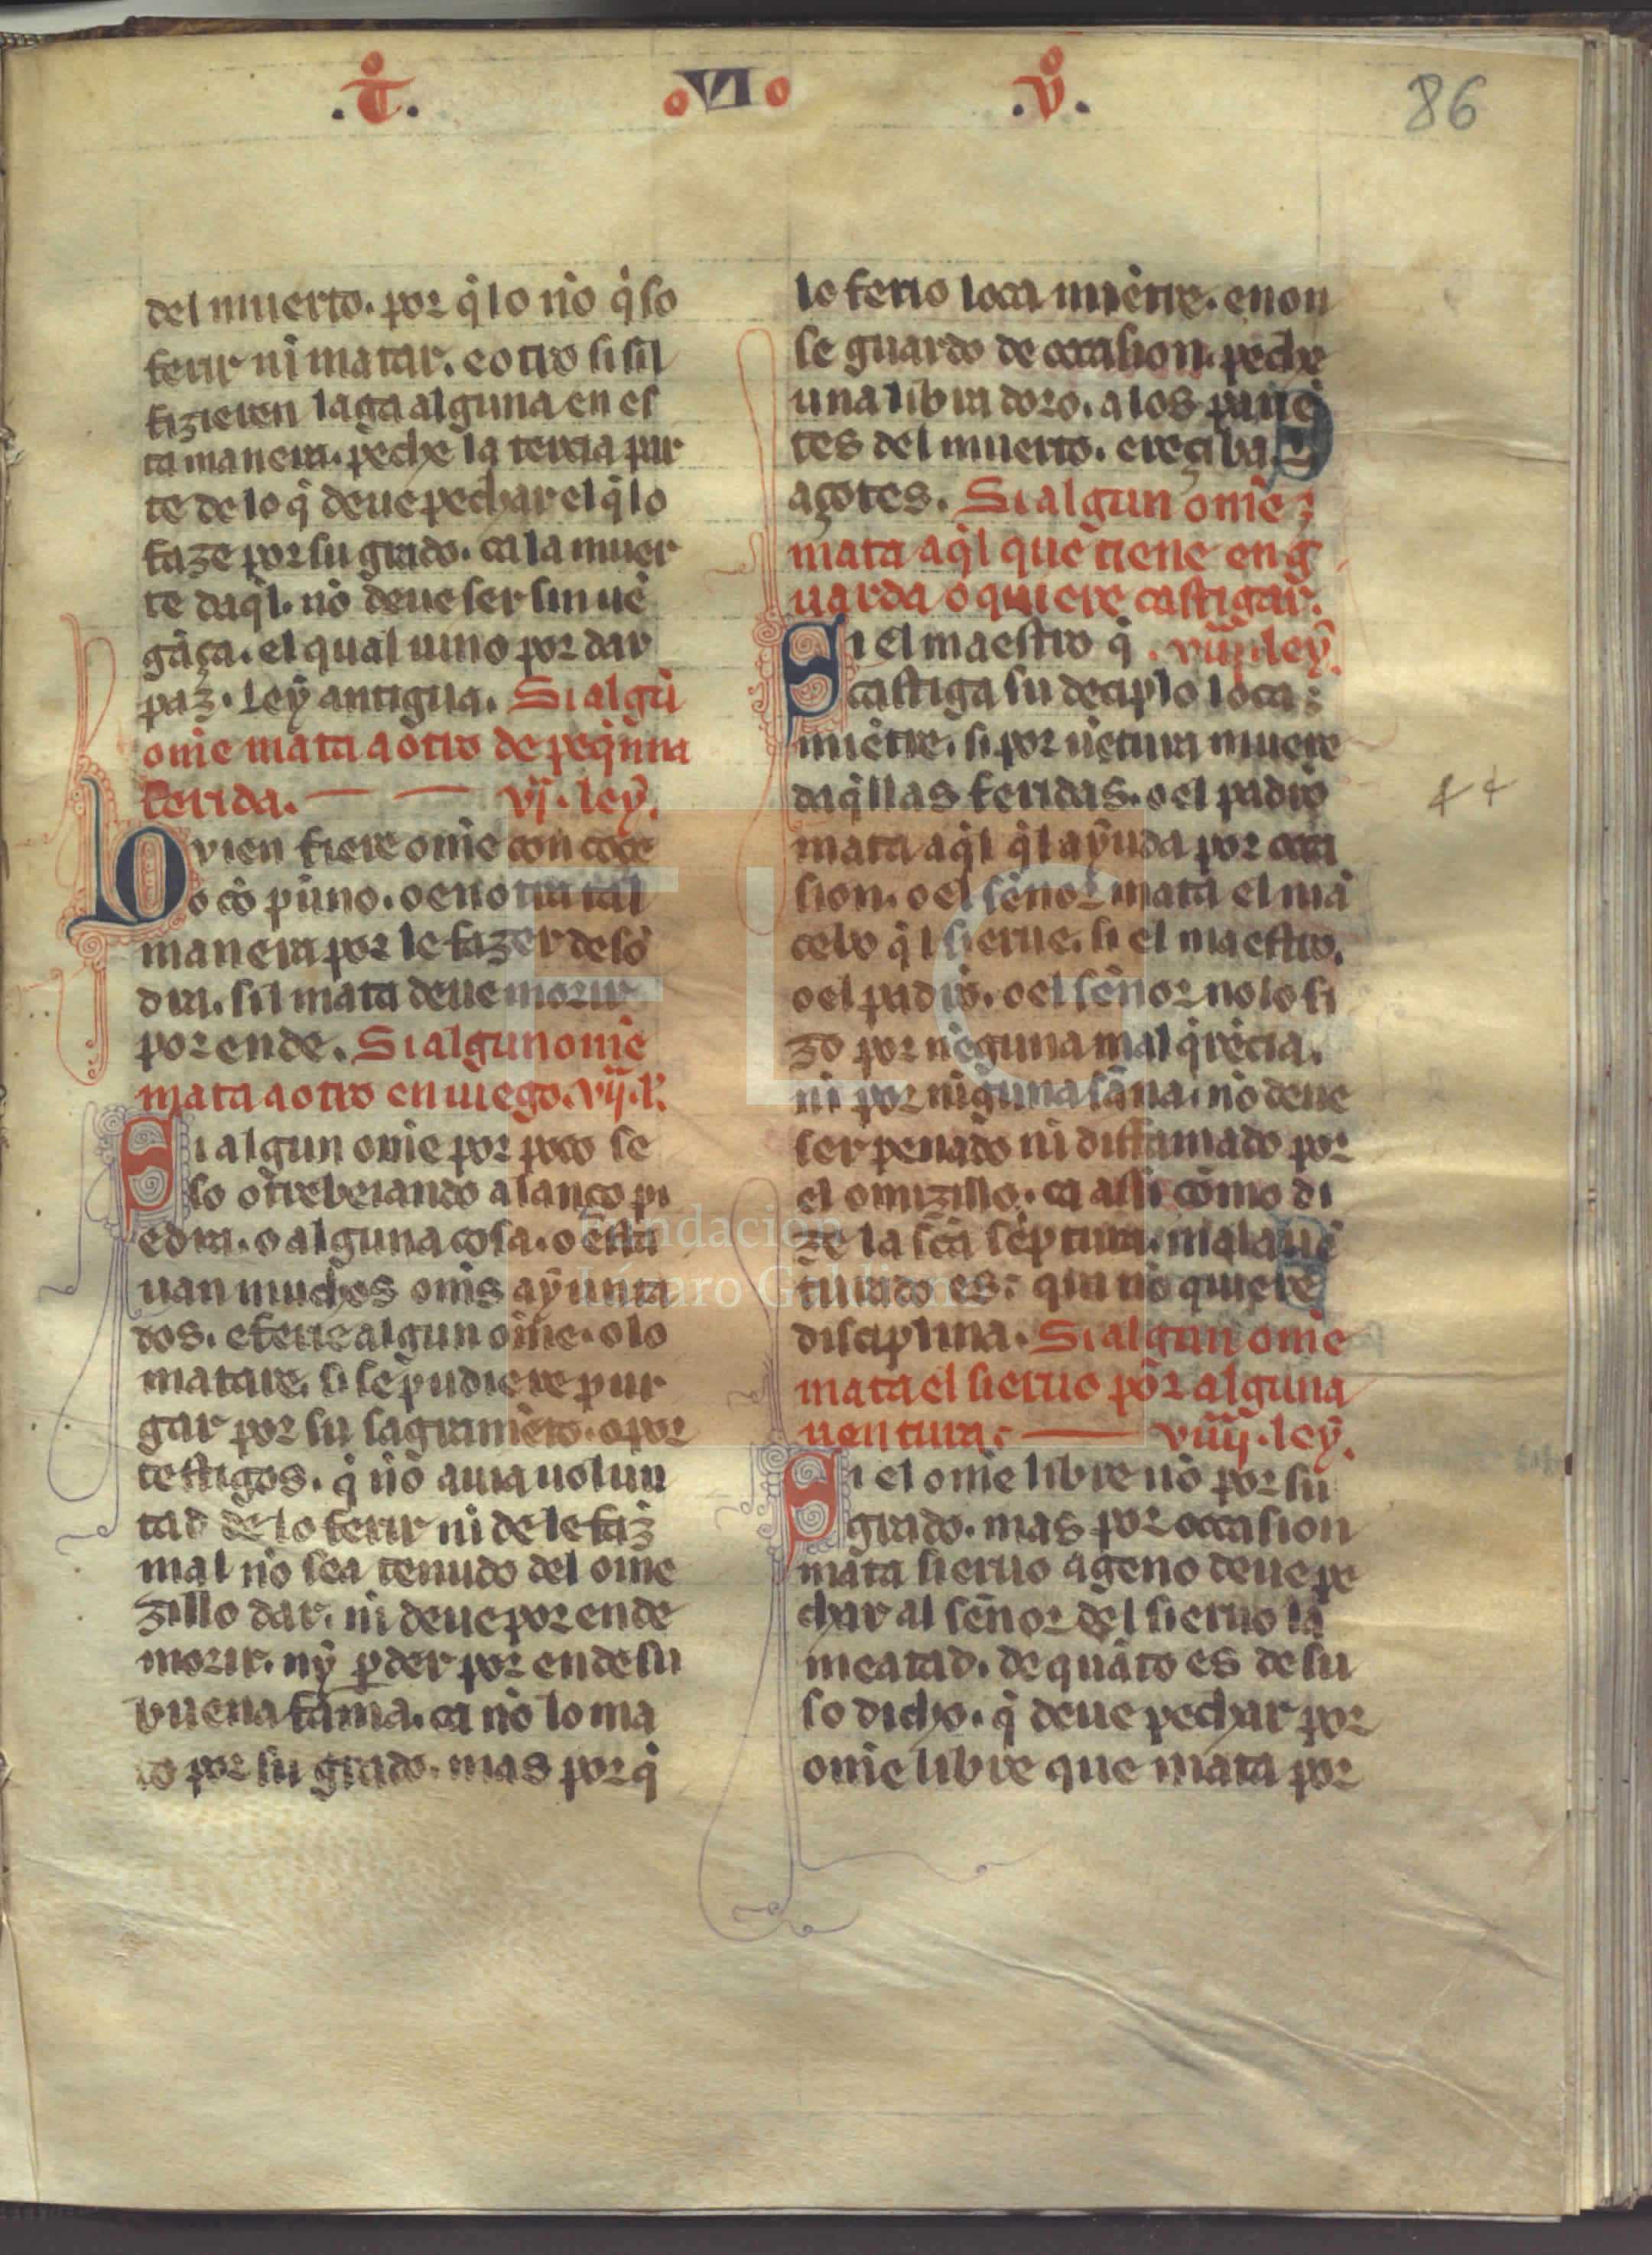 .T. VI .v. 86
del muerto. por q̃ lo nõ q̃so
ferir ni matar. e otro si sil
fizieren laga alguna en es
ta manera. peche la tercia par
te de lo q̃ deue pechar el q̃ lo
faze por su grado. ca la muer
te daq̃l. nõ deue ser sin uẽ
gãça. el qual uino por dar
paz. Ley antigua. Si algũ
om̃e mata a otro de peq̃nna
ferida. vj. ley.
Qvien fiere om̃e con coçe
o cõ pũno. o en otra tal
manera por le fazer desõ
dra. sil mata deue morir
por ende. Si algun om̃e
mata a otro en iuego. vij. l.
Si algun om̃e por poco se
so o trebeiando alanço pi
edra. o alguna cosa. o esta
uan muchos om̃s ayunta
dos. e fiere algun om̃e. o lo
matare. si se pudiere pur
gar por su sagramẽto. o por
testigos. q̃ nõ auia uolun
tad de lo ferir ni de le faz̃
mal nõ sea tenudo del ome
zillo dar. ni deue por ende
morir. ny p̱der por ende su
buena fama. ca nõ lo ma
to por su grado. mas por q̃
lo ferio loca miẽtre. e non
se guardo de occasion. peche
una libra doro. a los pariẽ
tes del muerto. e reçiba. L
açotes. Si algun om̃e
mata aq̃l que tiene en g
uarda o quiere castigar.
Si el maestro q̃ . viij. ley.
castiga su deciplo loca
miẽtre. si por uẽtura muere
daq̃llas feridas. o el padre
mata aq̃l q̃l ayuda por occa
sion. o el sẽnor mata el mã
cebo q̃l sierue. si el maestro.
o el padre. o el sẽnor no lo fi
zo por nẽguna mal q̃rẽcia.
ni por nĩguna sãna. nõ deue
ser penado ni diffamado por
el omizillo. ca assi cõmo di
ze la scã scp̃tura. malauẽ
turado es. qui nõ quiere
disciplina. Si algun om̃e
mata el sieruo por alguna
uentura. viiij. ley.
Si el om̃e libre nõ por su
grado. mas por occasion
mata sieruo ageno deue pe
char al sẽnor del sieruo la
meatad. de quãto es de su
so dicho. q̃ deue pechar por
om̃e libre que mata por
FLG
Fundación
Lázaro Galdiano